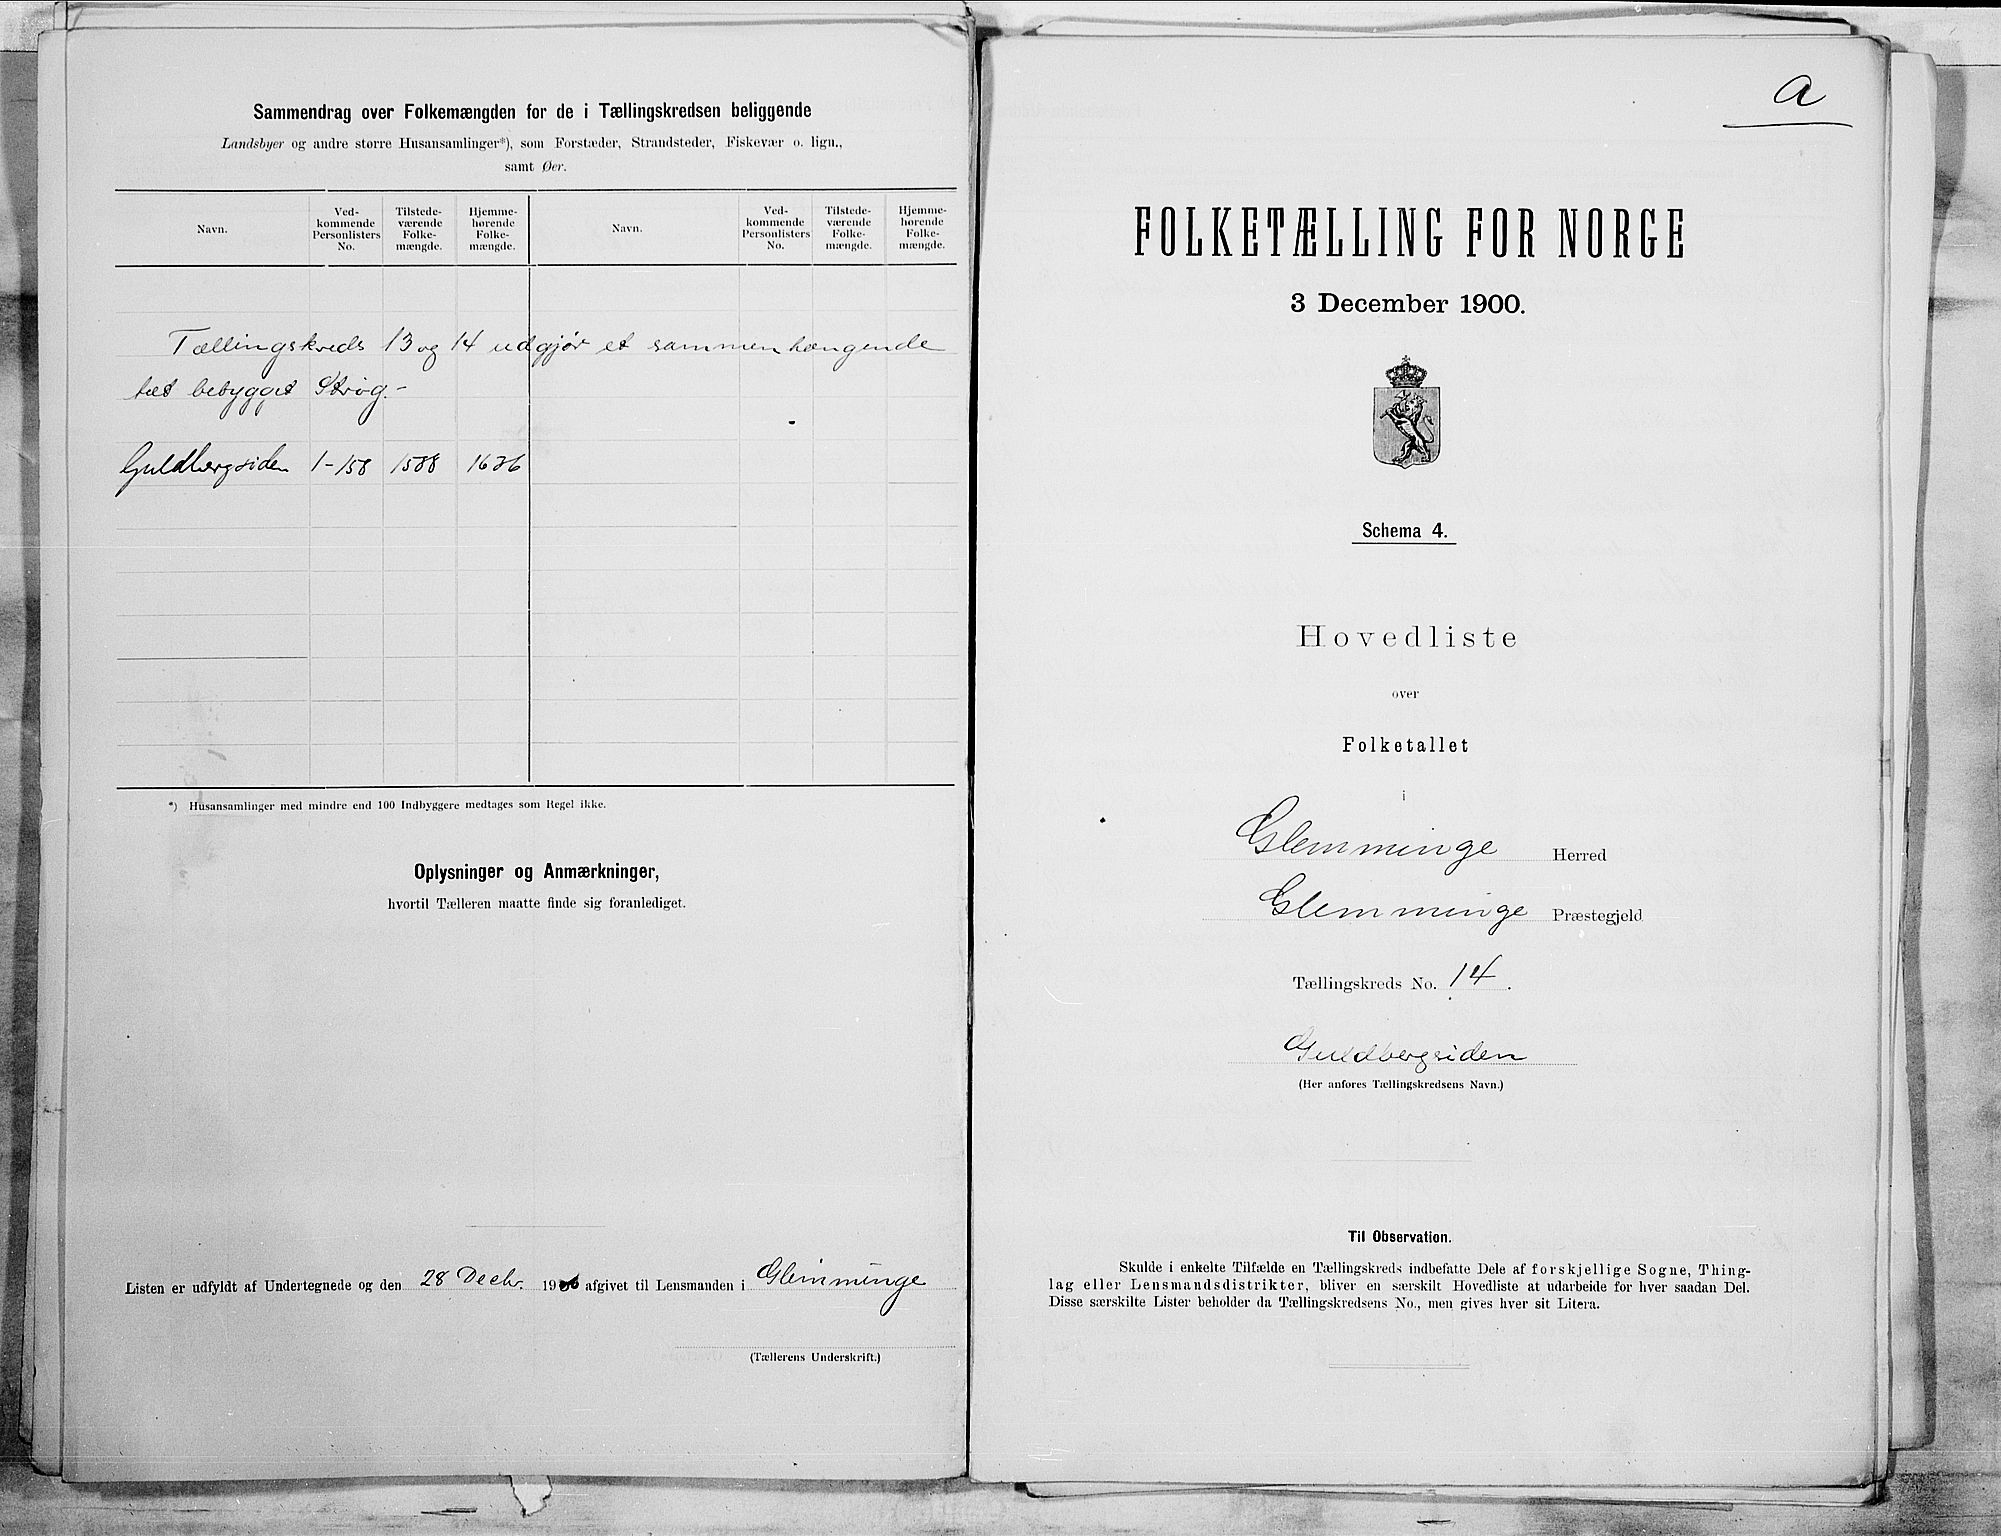 Sammendrag over Folkemængden for de i Tællingskredsen beliggende
Landsbyer og andre større Husansamlinger*), som Forstæder, Strandsteder, Fiskevær o. lign.,
samt Øer.
Navn. Ved-kommende Personlisters No. Tilstede-værende Folke-mængde. Hjemme-hørende Folke-mængde. Navn. Ved-kommende Personlisters No. Tilstede-værende Folke-mængde. Hjemme-hørende Folke-mængde.
Tællingskreds 13 og 14 udgjør et sammenhængende
tæt bebygget Strøg.-
Guldbergsiden 1-158 1588 1626
*) Husansamlinger med mindre end 100 Indbyggere medtages som Regel ikke.
Oplysninger og Anmærkninger,
hvortil Tælleren maatte finde sig foranlediget.
Listen er udfyldt af Undertegnede og den 28 Decbr. 190 afgivet til Lensmanden i Glemminge
(Tællerens Underskrift.)
a
FOLKETÆLLING FOR NORGE
3 December 1900.
Schema 4.
Hovedliste
over
Folketallet
i
Glemminge Herred
Glemminge Præstegjeld
Tællingskreds No. 14.
Guldbergsiden
(Her anføres Tællingskredsens Navn.)
Til Observation.
Skulde i enkelte Tilfælde en Tællingskreds indbefatte Dele af forskjellige Sogne, Thing-
lag eller Lensmandsdistrikter, bliver en særskilt Hovedliste at udarbeide for hver saadan Del.
Disse særskilte Lister beholder da Tællingskredsens No., men gives hver sit Litera.